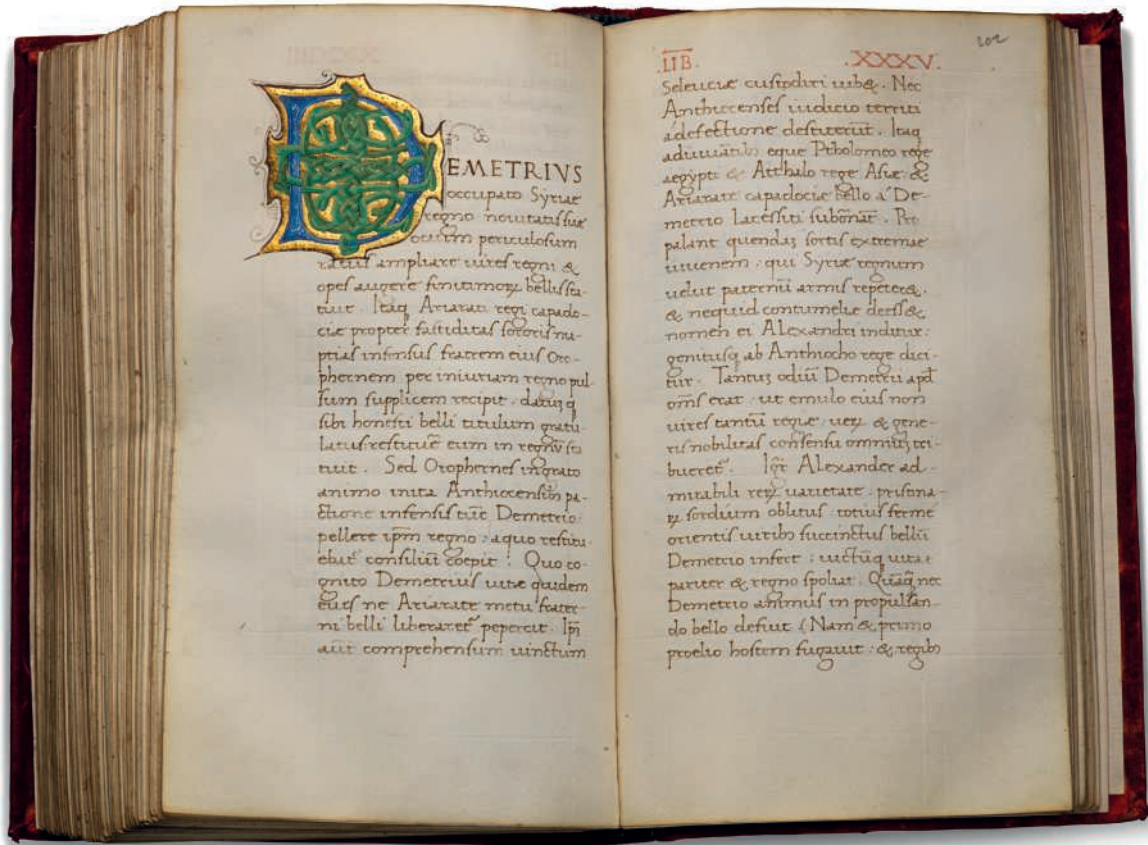 DEMETRIVS
occupato Syriae
regno nouitati suae
ocium periculosum
ratus ampliare uires regni &
opes augere finitimoꝝ bellis sta-
tuit. Itaq Ariarati regi capado-
ciae propter fastiditas sororis nu-
ptias infensus fratrem eius Oro-
phernem per iniuriam regno pul-
sum supplicem recipit. datūq
sibi honesti belli titulum gratu
latus restitue eum in regnū sta
tuit. Sed Orophernes ingrato
animo inita Anthiocensibꝫ pa-
ctione infensis tūc Demetrio.
pellere ip̄m regno. a quo restitu-
ebat consiliū coepit. Quo co-
gnito Demetrius uitae quidem
eius ne Ariarate metu frater-
ni belli liberaret pepercit. Ip̄m
aūt comprehensum uinctum
LIB. XXXV.
202
Seleuciae custodiri iub&. Nec
Anthiocenses iudicio territi
a defectione destiterūt. Itaq
adiuuātibꝫ eque Ptholomeo rege
aegypti & Atthalo rege Asiae &
Ariarate capadociae bello a De-
metrio lacessiti subōnāt. Pro
palant quendaꝫ sortis extremae
iuuenem: qui Syriae regnum
uelut paternū armis repeter&.
& nequid contumeliae dees&
nomen ei Alexandri inditur:
genitusq ab Anthiocho rege dici-
tur. Tantuꝫ odiū Demetrii apd̄
om̄s erat. ut emulo eius non
uires tantū regiae ueꝝ & gene-
ris nobilitas consensu omniuꝫ tri-
bueret. Igr̄ Alexander ad-
mirabili reꝝ uarietate. pristina-
ꝝ sordium oblitus. totius ferme
orientis uiribꝫ succinctus bellū
Demetrio infert: uictūq uitae
pariter & regno spoliat. Quāq̄ nec
Demetrio animus in propulsan-
do bello defuit (Nam & primo
proelio hostem fugauit: & regibꝫ